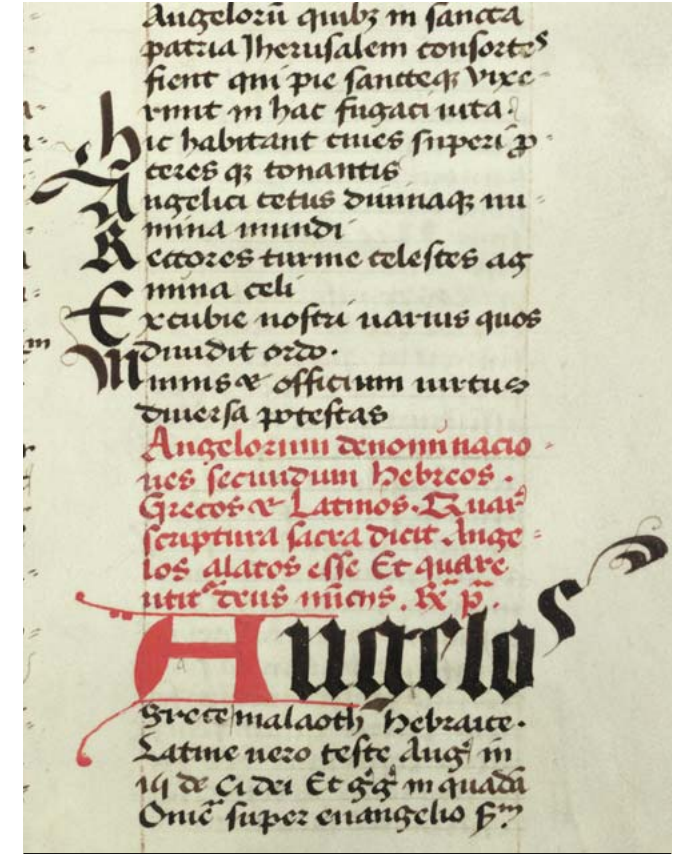 Angelorū quibꝫ in sancta
patria Jherusalem consortes
fient qui pie sancteqꝫ vixe-
rint in hac fugaci uita.
hic habitant ciues superi ꝓ
ceres qꝫ tonantis
Angelici cetus diuinaqꝫ nu-
mina mundi
Rectores turme celestes ag
mina celi
Excubie nostri uarius quos
diuidit ordo.
Munus & officium uirtus
diuersa potestas
Angelorum denominacio-
nes secundum Hebreos.
Grecos & Latinos. Quare
scriptura sacra dicit Ange-
los alatos esse Et quare
utitᷣ deus nūcijs.
Angelos
Grece malaoth Hebraice.
Latine uero teste Augᷣ in
de Ci dei Et in quadā
super euangelio